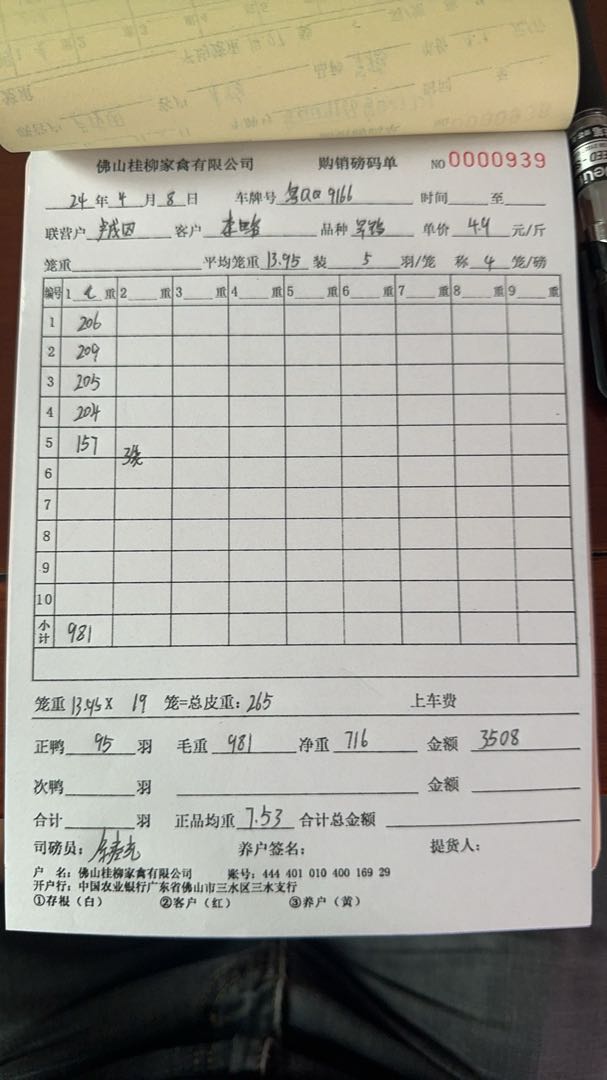 佛山桂柳家禽有限公司 购销磅码单 NO 0000939
24年4月8日 车牌号 9166 时间 至
联营户 客户 品种 单价 4.9 元/斤
笼重 平均笼重 13.95 装 5 羽/笼 称 4 笼/磅
编号 1 重 2 重 3 重 4 重 5 重 6 重 7 重 8 重 9 重
1 206
2 209
3 205
4 204
5 157 3笼
6
7
8
9
10
小计 981
笼重 13.95 X 19 笼=总皮重: 265 上车费
正鸭 95 羽 毛重 981 净重 716 金额 3508
次鸭 羽 金额
合计 羽 正品均重 7.53 合计总金额
司磅员: 养户签名: 提货人:
户 名: 佛山桂柳家禽有限公司 账号: 444 401 010 400 169 29
开户行: 中国农业银行广东省佛山市三水区三水支行
①存根(白) ②客户(红) ③养户(黄)